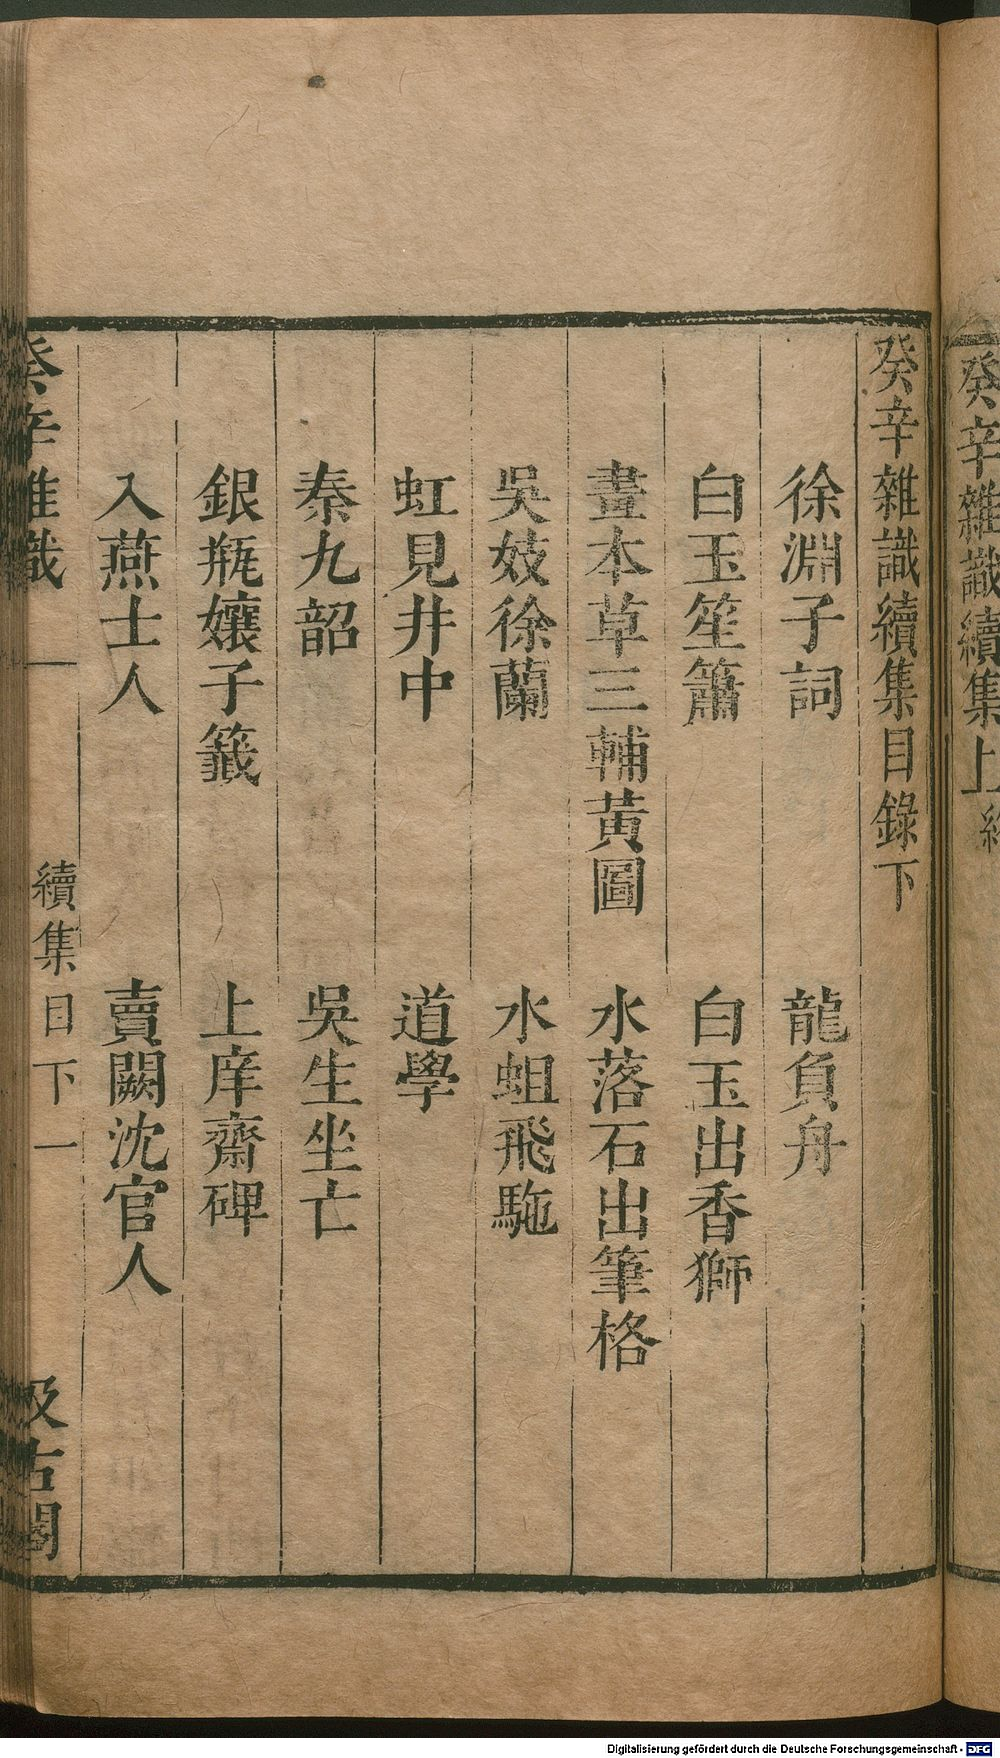 癸辛雜識續集上
癸辛雜識續集目錄下
徐淵子詞　龍負舟
白玉笙簫　白玉出香獅
畫本草三輔黃圖　水落石出筆格
吳妓徐蘭　水蛆飛駞
虹見井中　道學
秦九韶　吳生坐亡
銀瓶孃子籤　上庠齋碑
入燕士人　賣闕沈官人
癸辛雜識　續集目下一　汲古閣
Digitalisierung gefördert durch die Deutsche Forschungsgemeinschaft - DFG